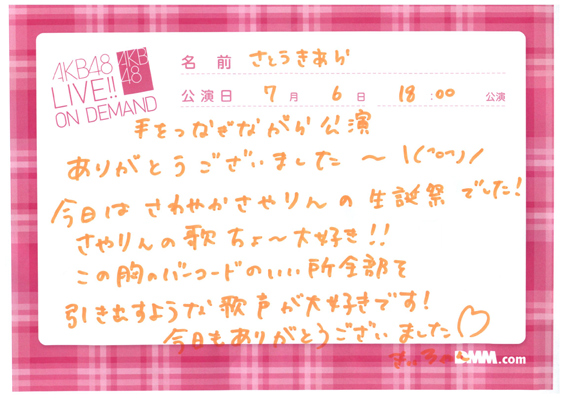 AKB48
LIVE!!
ON DEMAND
AKB
48
名前 さとうきあら
公演日 7月 6日 18:00 公演
手をつなぎながら公演
ありがとうございました〜 \(^o^)/
今日はさわやかさやりんの生誕祭でした!
さやりんの歌ちょ〜大好き!!
この胸のバーコードのいい所全部を
引き出すような歌声が大好きです!
今日もありがとうございました♡
DMM.com